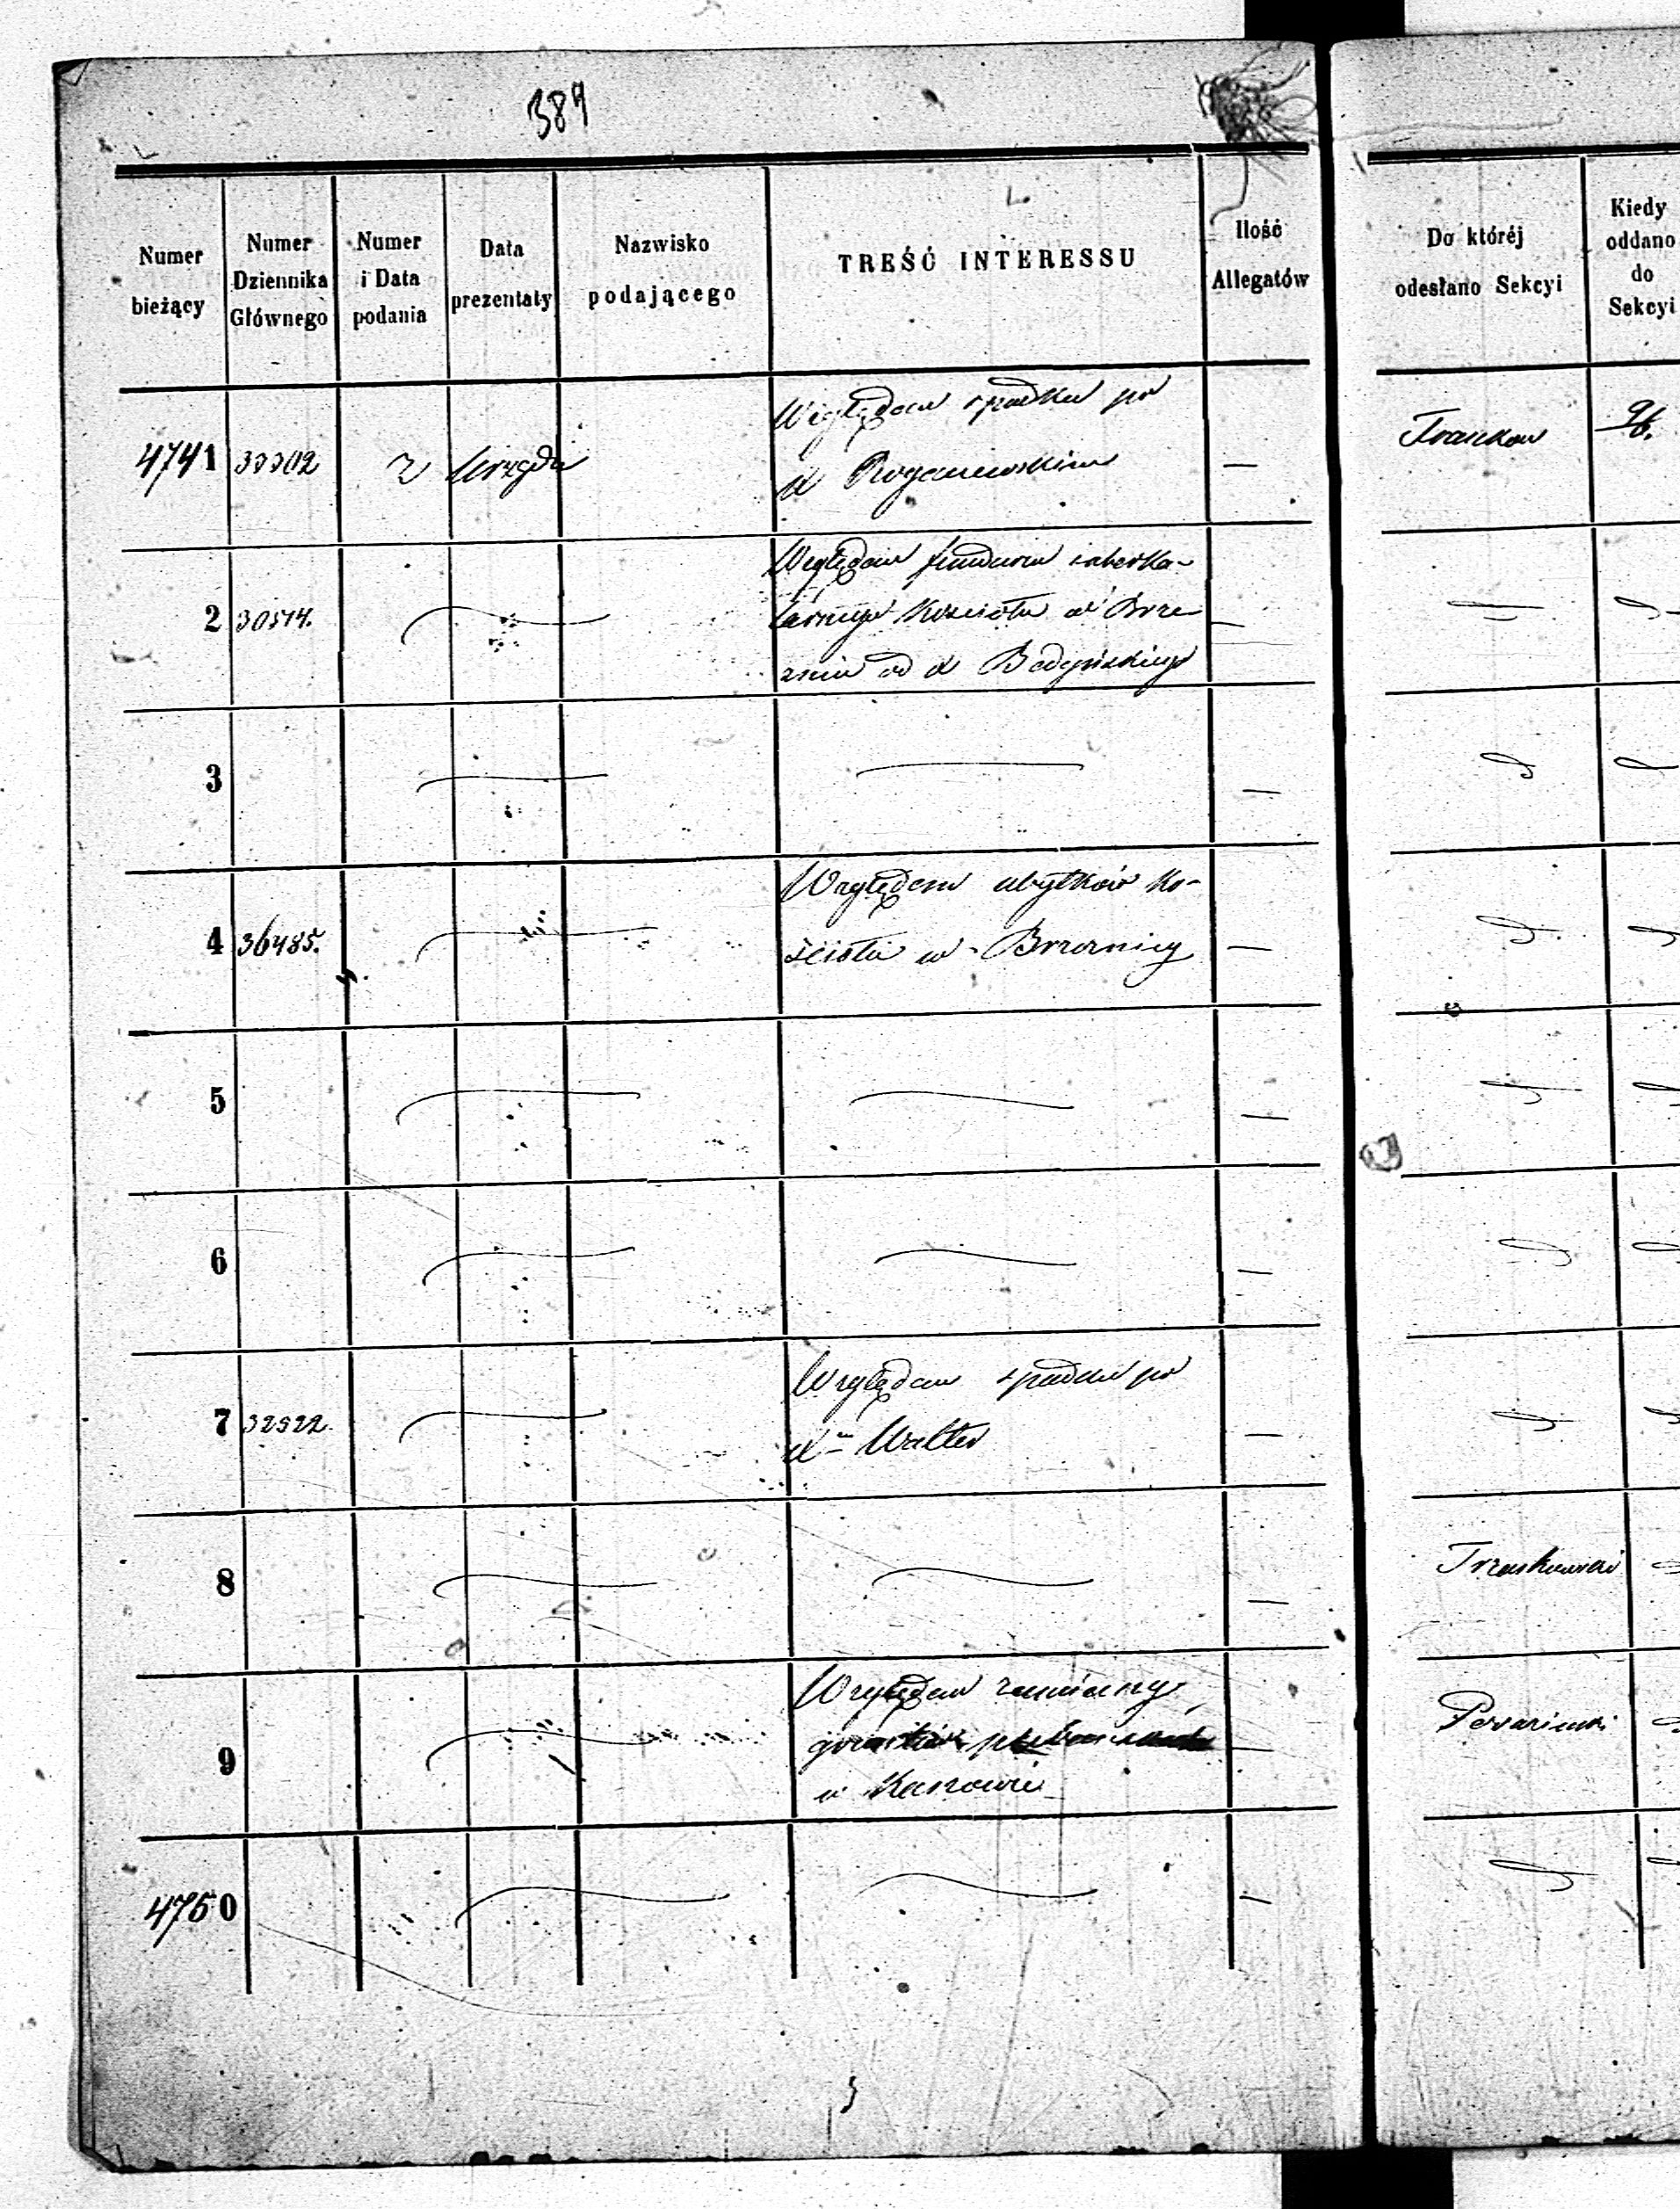 389
Numer bieżący
Numer Dziennika Głównego
Numer i Data podania
Data prezentaty
Nazwisko podającego
TREŚĆ INTERESSU
Ilość Allegatów
Do któréj odesłano Sekcyi
Kiedy oddano do Sekcyi
4741 33302 z Urzędu
Względem spadku po
X
—
2 30514.
Względem funduszu
Kościoła w Brze
zniu od X Bedyńskiego
3
—
4 36485.
Względem ubytków Ko-
ścioła w Brzeznicy
—
5
—
6
—
7 32522
Względem spadku po
X Walter
—
8
—
Trzaskowski
9
Względem zamiany
gruntów
w
—
4750
—